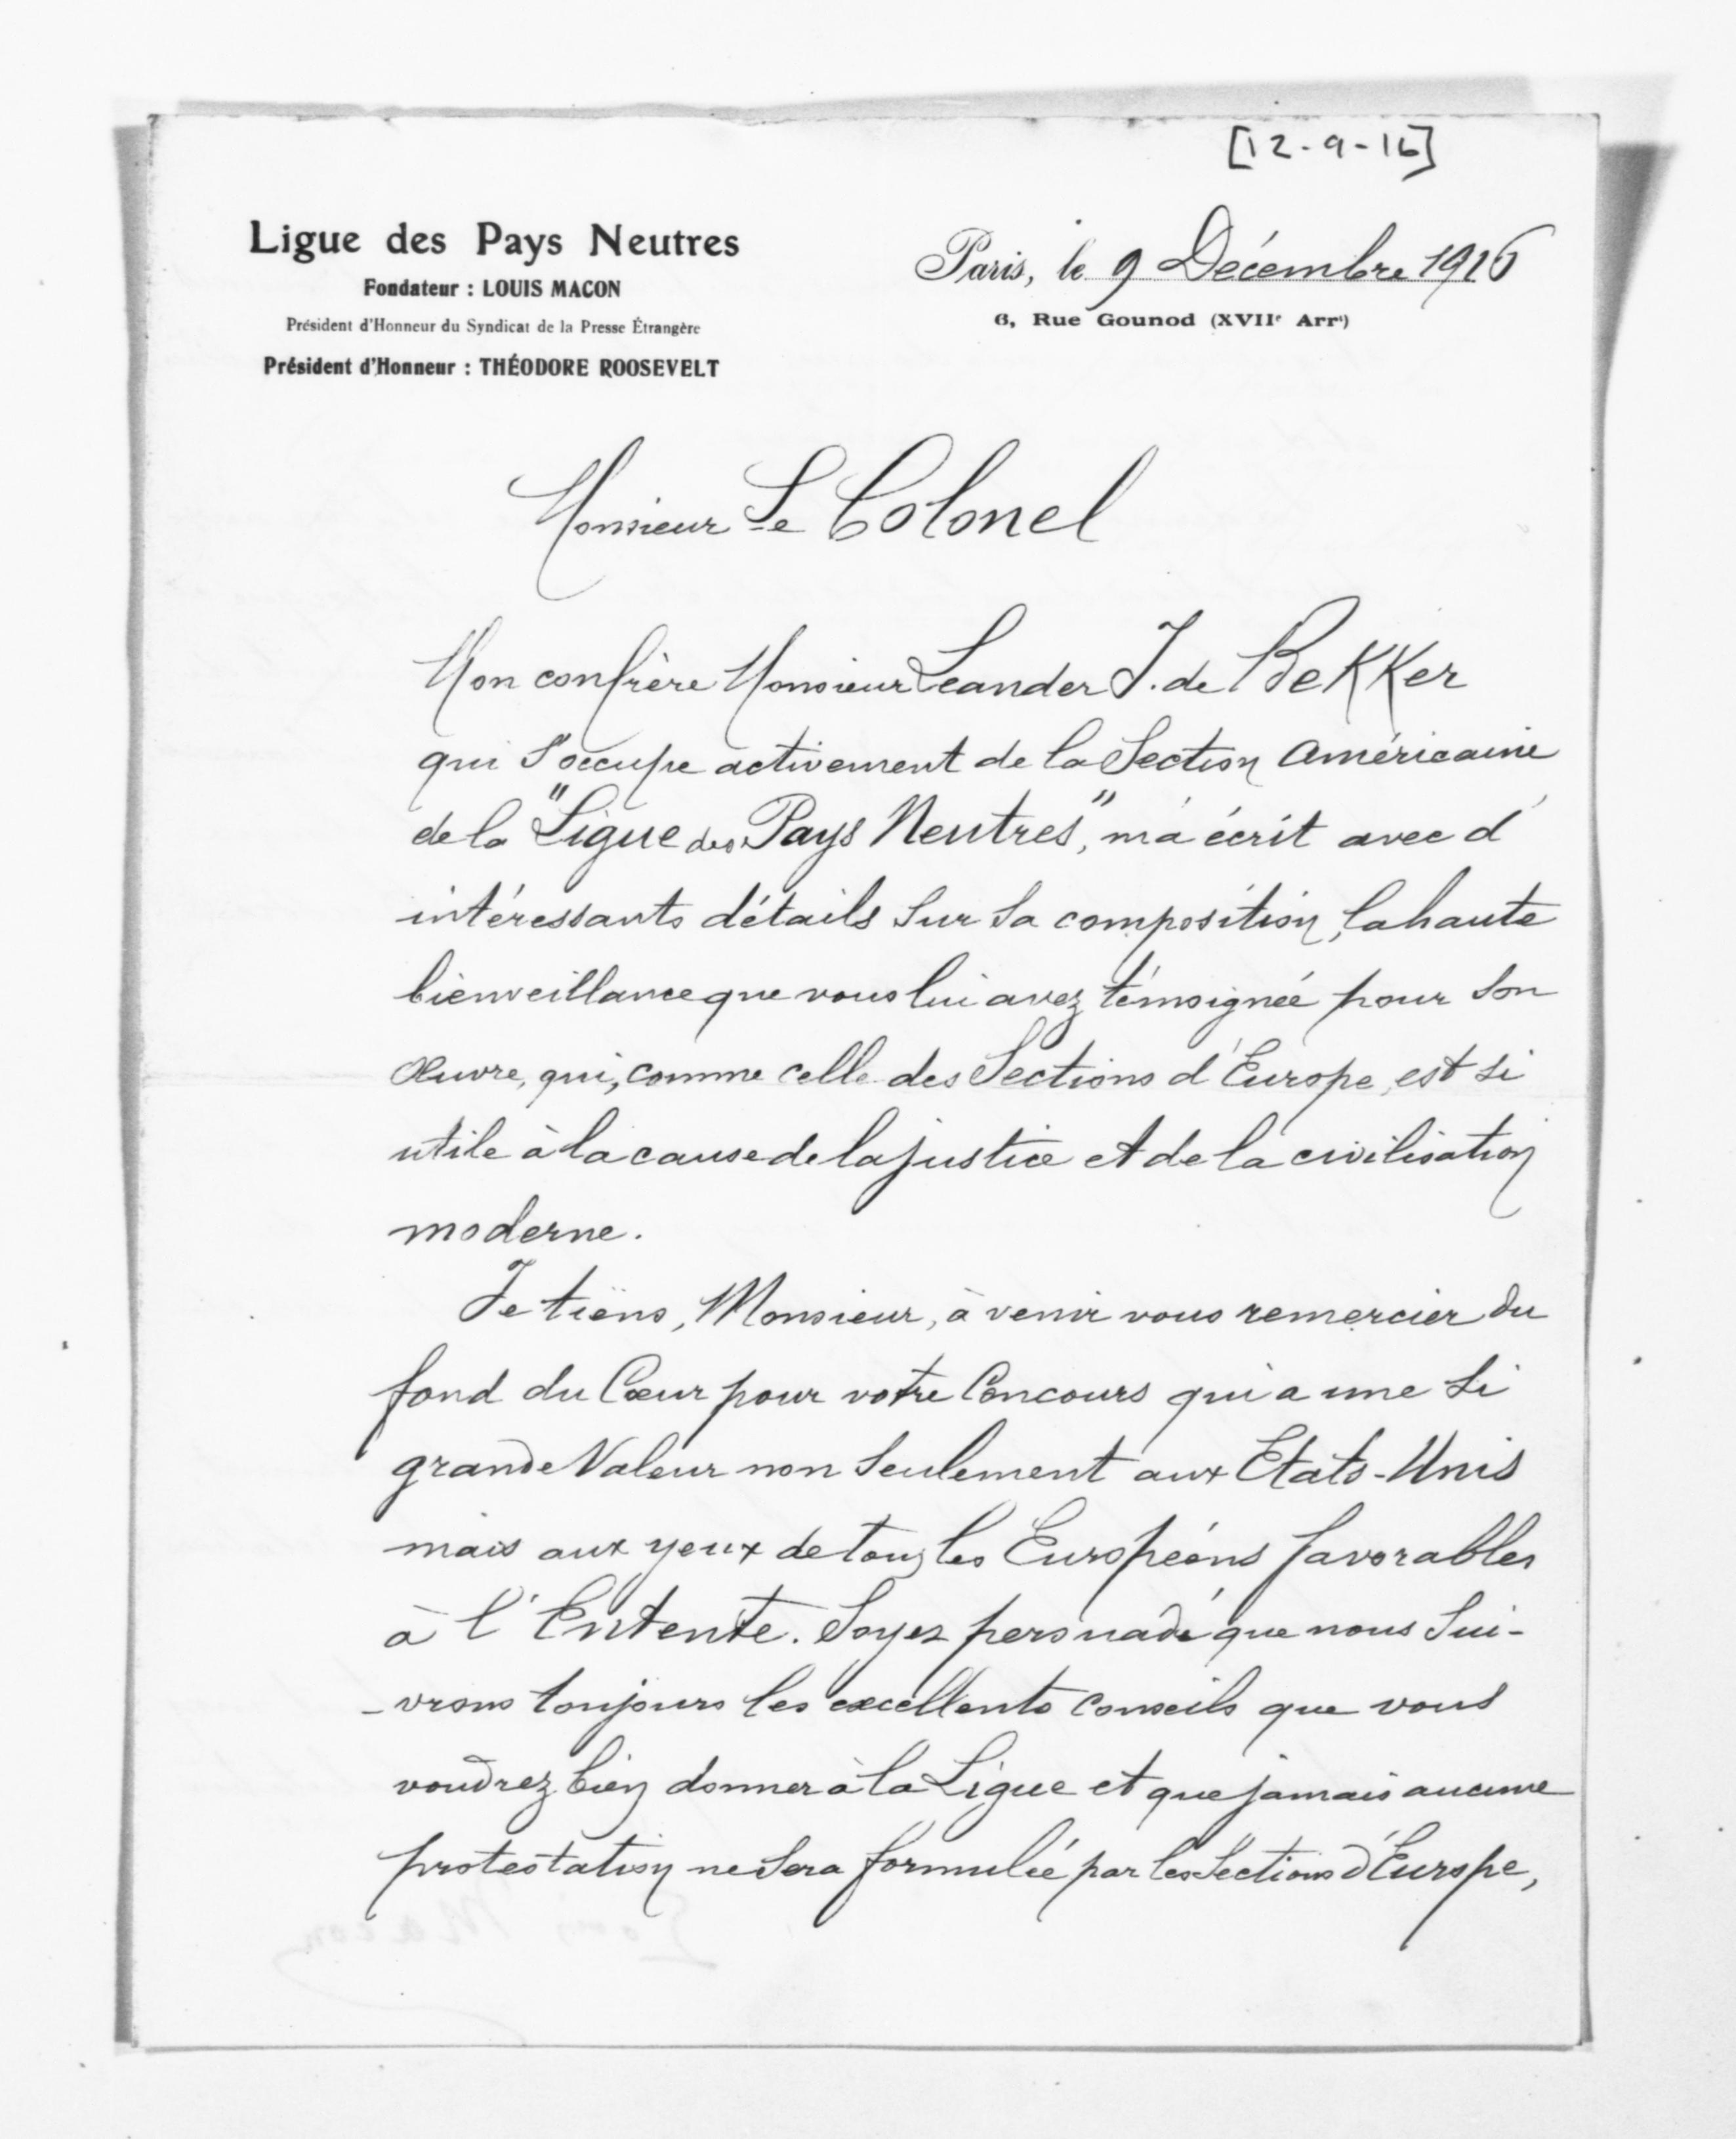 [12-9-16]
Ligue des Pays Neutres
Fondateur : LOUIS MACON
Président d'Honneur du Syndicat de la Presse Étrangère
Président d'Honneur : THÉODORE ROOSEVELT
Paris, le 9 Décembre 1916
6, Rue Gounod (XVIIe Arrt)
Monsieur Le Colonel
Mon confrère Monsieur Leander J. de Bekker
qui s'occupe activement de la Section Américaine
de la "Ligue des Pays Neutres", m'a écrit avec d'
intéressants détails sur sa composition, la haute
bienveillance que vous lui avez témoignée pour son
Œuvre, qui, comme celle des Sections d'Europe, est si
utile à la cause de la justice et de la civilisation
moderne.
Je tiens, Monsieur, à venir vous remercier du
fond du Cœur pour votre Concours qui a une si
grande Valeur non seulement aux Etats-Unis
mais aux yeux de tous les Européens favorables
à l'Entente. Soyez persuadé que nous sui-
-vrons toujours les excellents conseils que vous
voudrez bien donner à la Ligue et que jamais aucune
protestation ne sera formulée par les Sections d'Europe,
Louis Macon